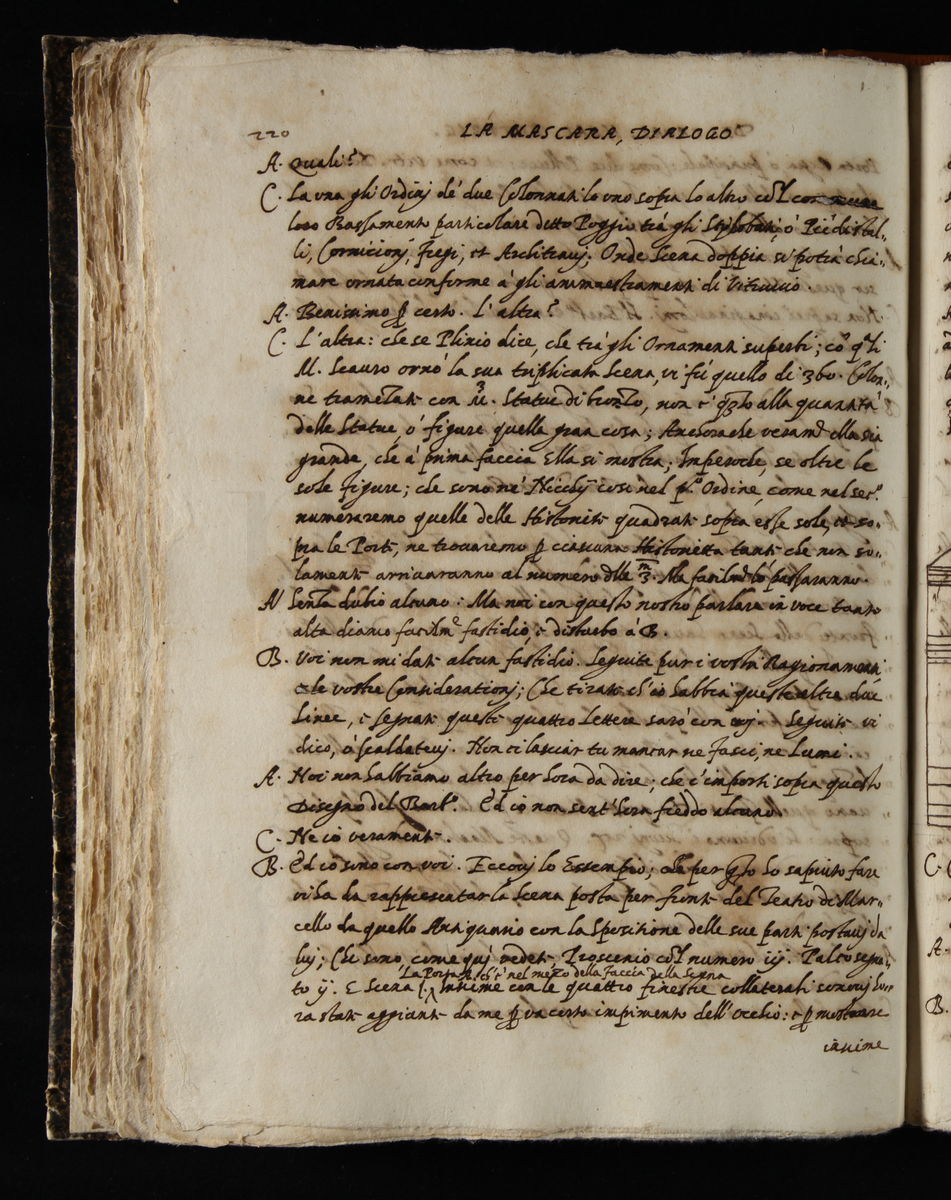 220 LA MASCARA, DIALOGO
A. Quali?
C. La una gli Ordini de' due Colonnati lo uno sopra lo altro col
loro Bassamento particolare detto Poggio tra' gli Stilobati, ò Piedistal-
li, Cornicionj, Fregi, et Architravj. Onde Scena doppia si potrà chia-
mare ornata conforme à gli ammaestramenti di Vitruvio.
A. Benissimo p certo. L'altra?
C. L'altra: che se Plinio dice, che trà gli Ornamenti superbi; cō q̄li
M. Scauro ornò la sua triplicata Scena, vi fù quello di 360. Colon-
ne tramezate con 3 M. Statue di bronzo, non è q̄sto alla quantità
delle Statue, ò figure quella gran cosa; Ancorache veramᵗᵉ ella sia
grande, che à prima faccia Ella si mostra; Imperoche, se oltre le
sole figure; che sono ne' Nicchj così nel p.º Ordine, come nel sec.º
numeraremo quelle delle Historiette quadrate sopra esse sole, et so-
pra le Porte, ne trovaremo p ciascuna Historietta tante che non so-
lamente arrivaranno al numero delle 3 m. Ma facilmᵗᵉ lo passaranno.
A. Senza dubio alcuno: Ma noi con questo nostro parlare in voce tanto
alta diamo facilmᵗᵉ fastidio, e disturbo à B.
B. Voi non mi date alcun fastidio. Seguite pur i vostri Ragionamenti
e le vostre Considerationj; Che tirate ch'io habbia queste altre due
Linee, e segnate queste quattro Lettere sarò con voj. Seguite vi
dico, ò scaldatevj. Non ci lasciar tu mancar ne fasci, ne Lumi.
A. Noi non habbiamo altro per hora da dire; che c'importi sopra questo
Disegno del Barb.º Ed io non sento sera freddo alcuno.
C. Ne io veramente.
B. Ed io sono con voi. Eccovj lo Essempio; che per q̄to ho saputo fare
vi ha da rappresentar la Scena posta per fronte del Teatro di Mar-
cello da quello Antiquario con la Spositione delle sue parti postavj da
luj; Che sono, come quì vedete, Proscenio col numero iij. Palco
to ij. E Scena j. La Porta ch'è nel mezo della faccia della Scena
insieme con le quattro finestre collaterali sonovj ho-
ra state aggiunte da me p un certo impimento dell'occhio: e p mostrare
insieme